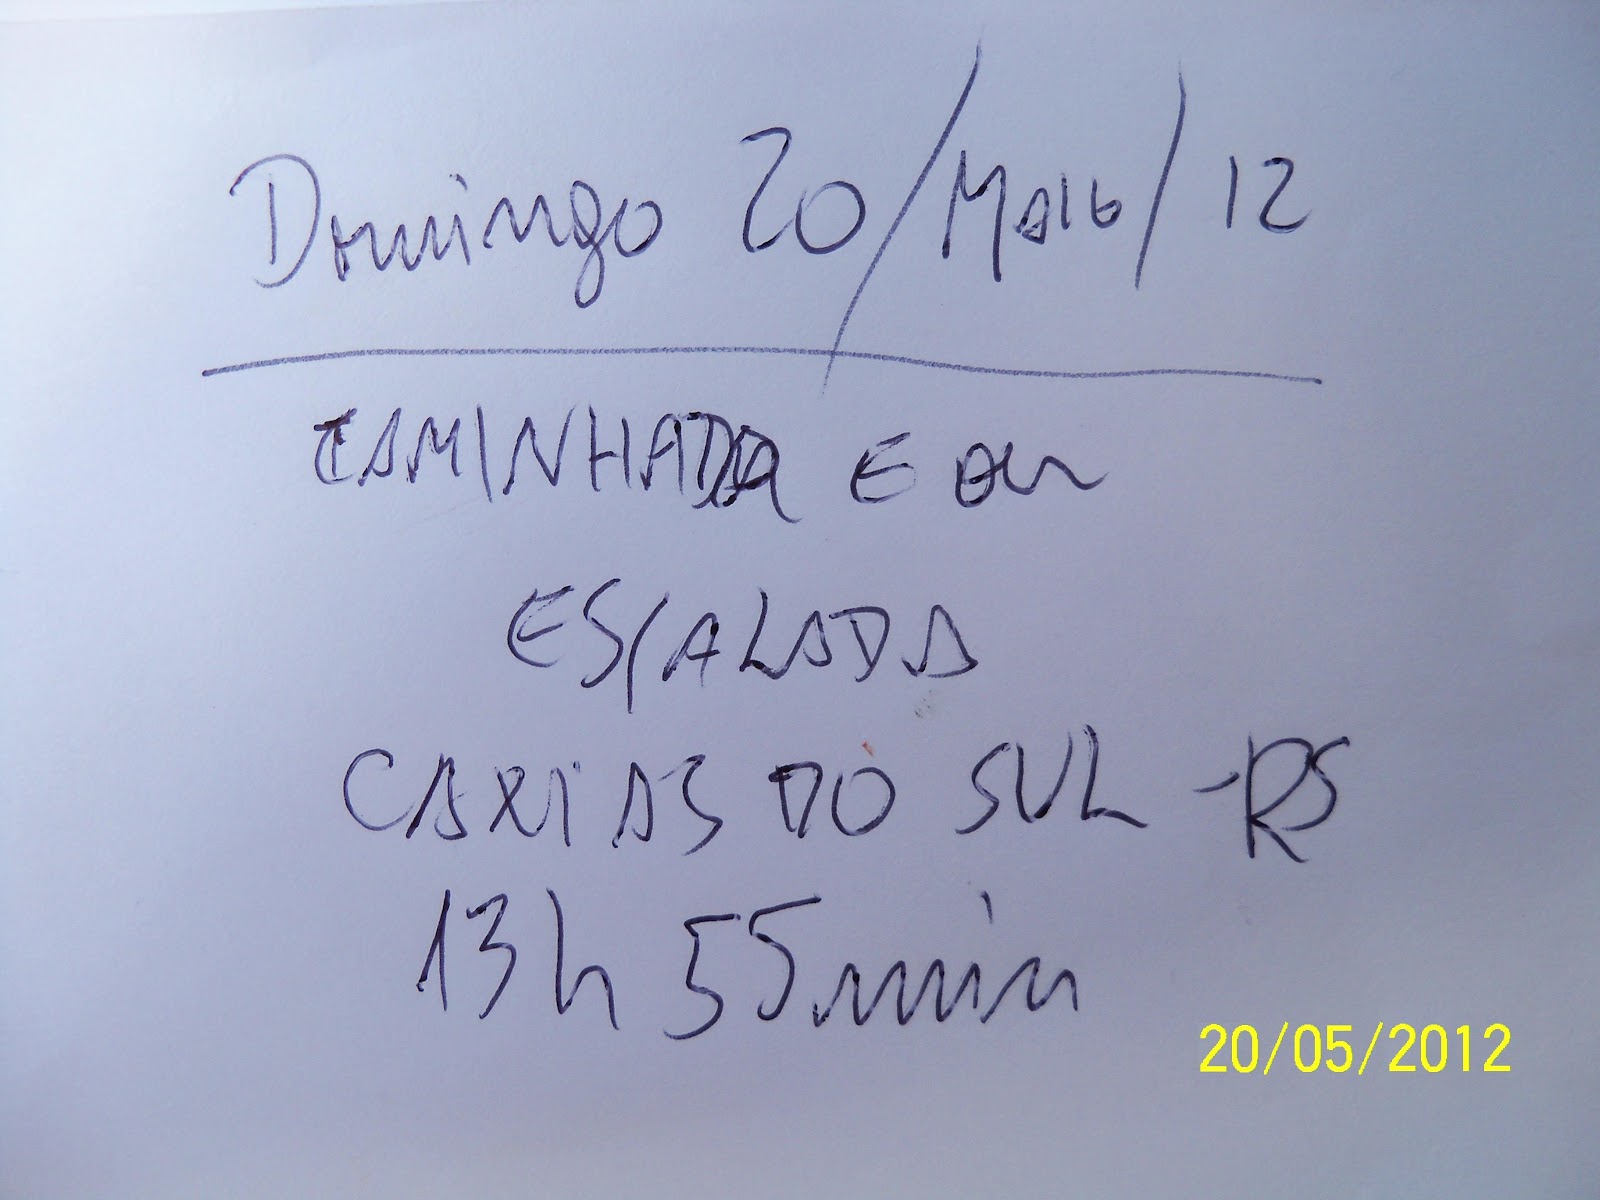 Domingo 20/MAIO/12
CAMINHADA E OU
ESCALADA
CAXIAS DO SUL -RS
13h 55min
20/05/2012